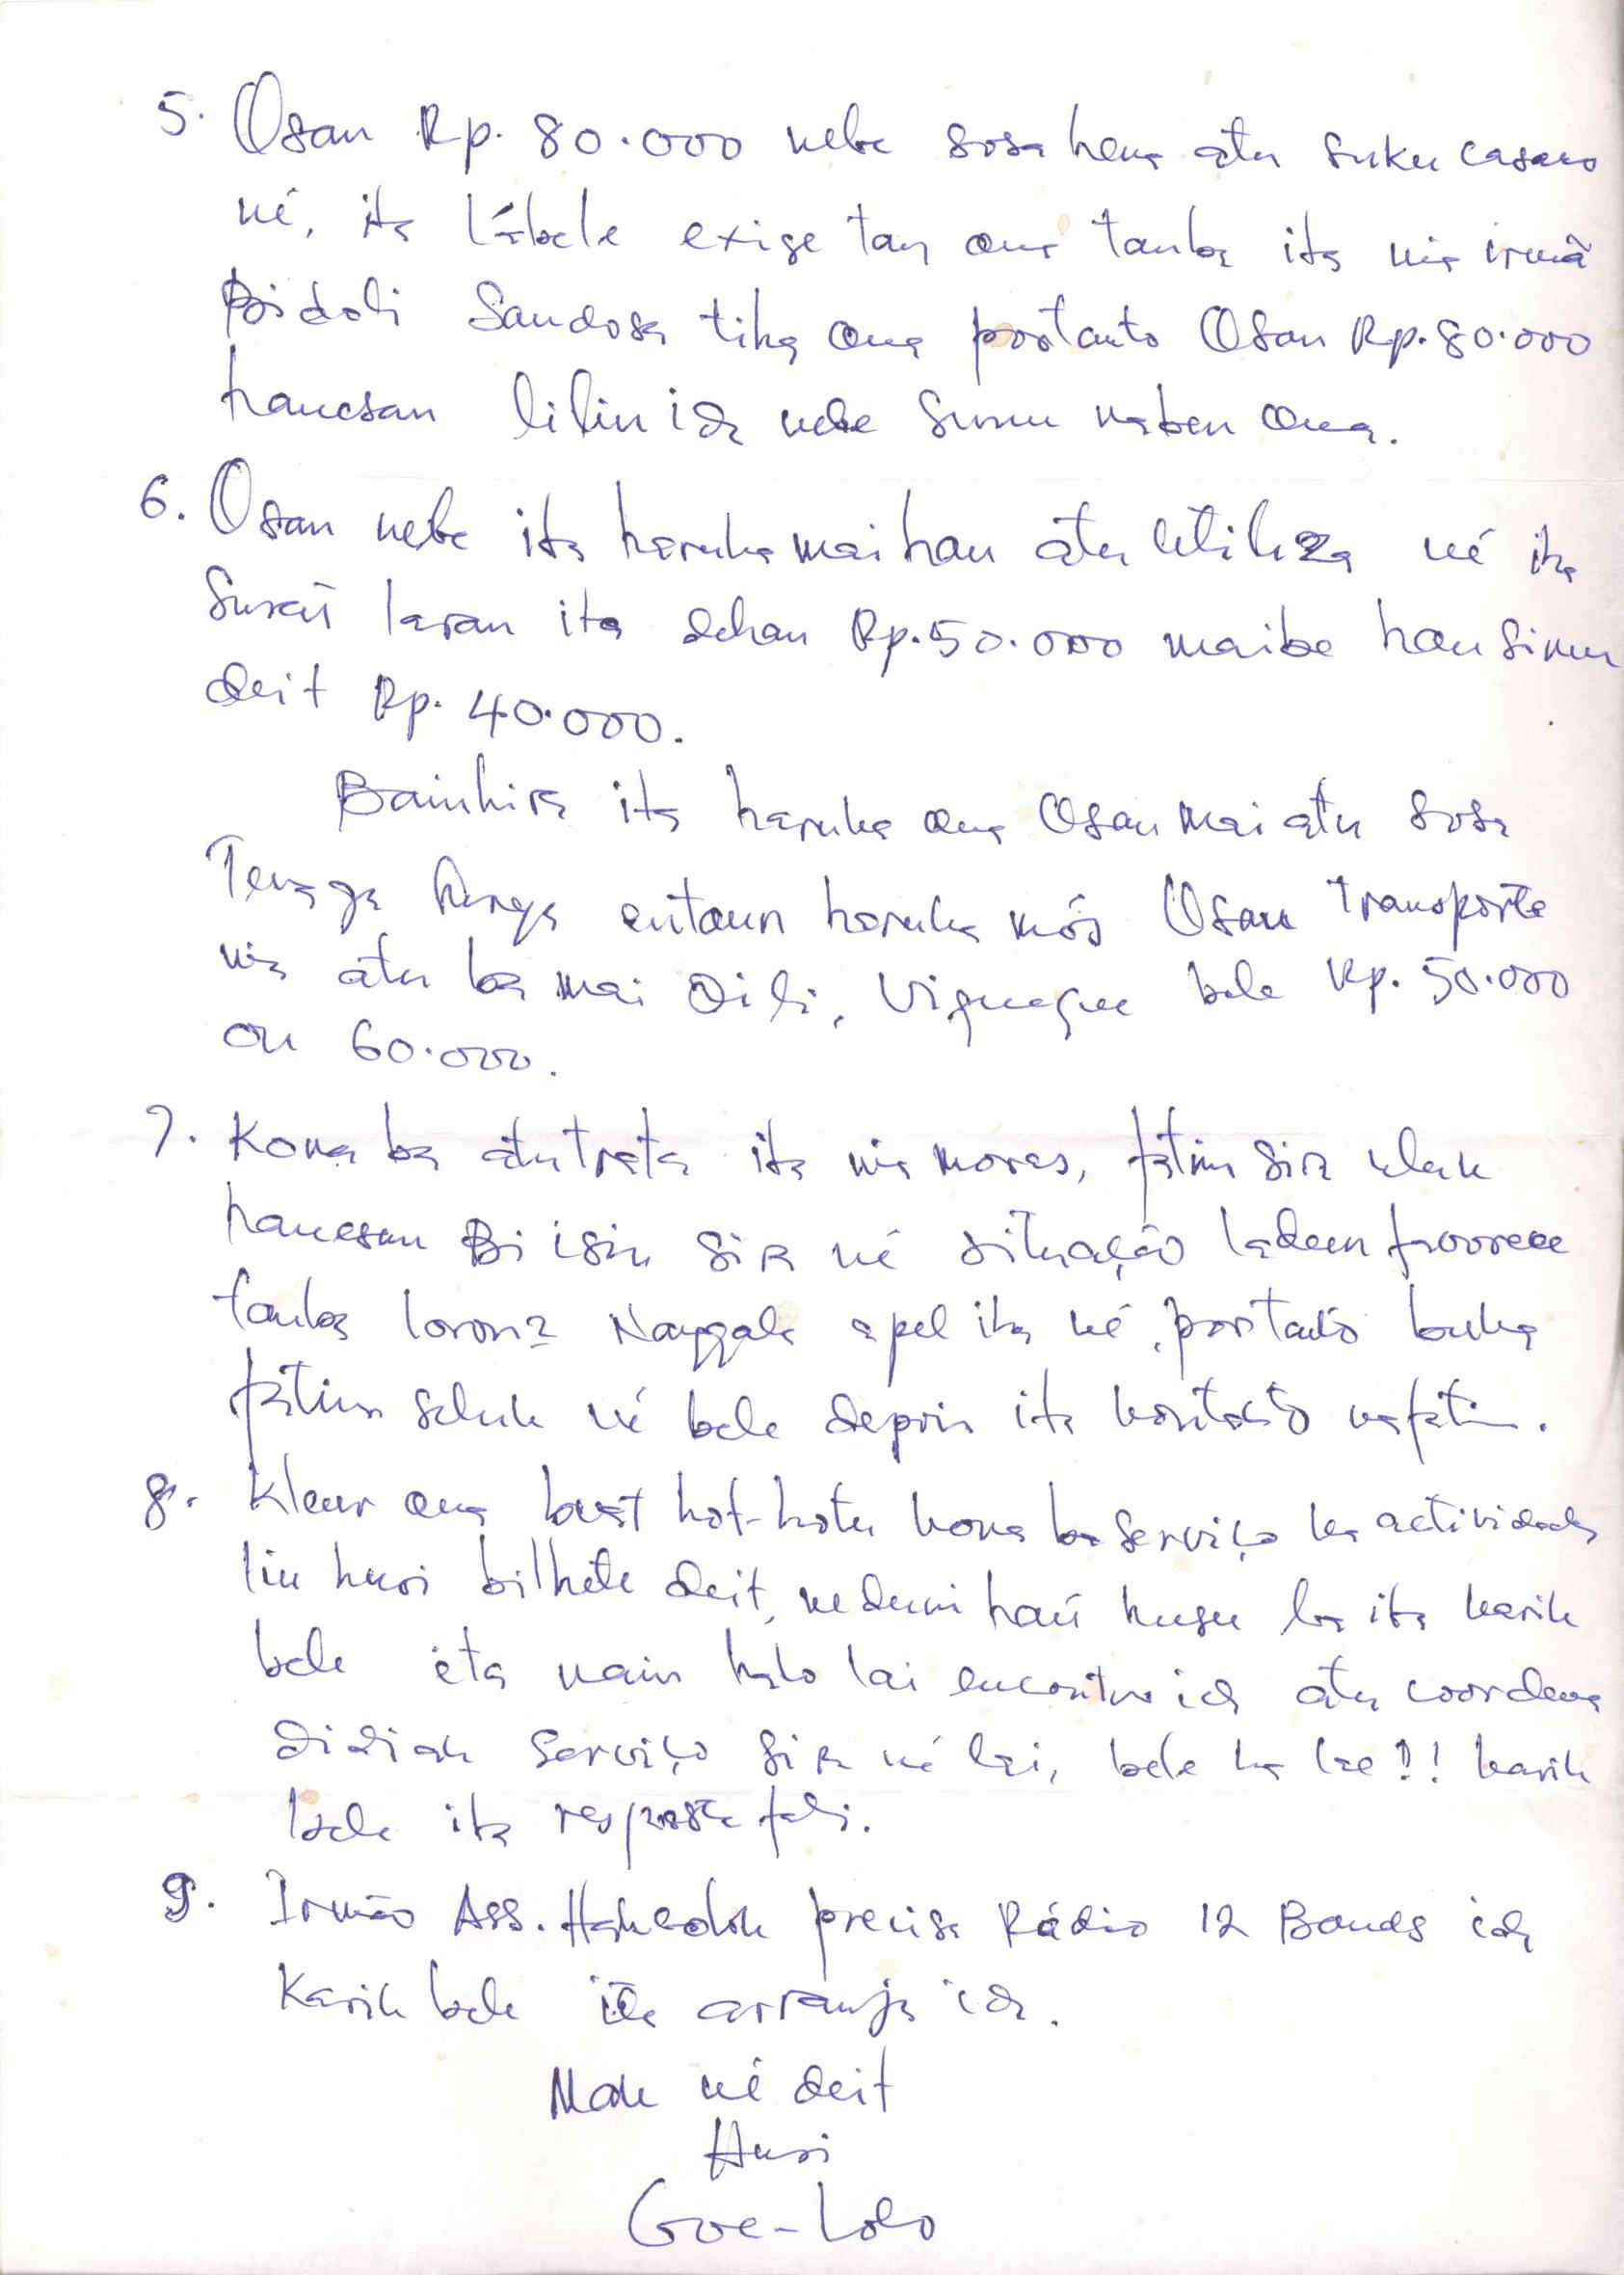 5. Osan Rp. 80.000 nebe sosa hena atu suku casaco
né, ita lábele exige tan ona tanba ita nia irmã
Bidoli Sandosa tiha ona portanto Osan Rp. 80.000
hanesan lilin ida nebe sunu naben ona.
6. Osan nebe ita haruka mai hau atu utiliza né iha
surat laran ita dehan Rp. 50.000 maibe hau simu
deit Rp. 40.000.
Bainhira ita haruka ona Osan mai atu sosa
entaun haruka mós Osan transporte
nia atu ba mai Dili, Viqueque bele Rp. 50.000
ou 60.000.
7. Kona ba atu trata ita nia moras, fatin sira uluk
hanesan Bi isin sira né situação ladeun favorece
tanba loron2 Nanggala apel iha né, portanto buka
fatin seluk né bele depois ita kontakto nafatin.
8. Kleur ona buat hot-hotu kona ba serviço ka actividade
liu husi bilhete deit, neduni haú husu ba ita karik
bele ita nain halo lai encontro ida atu coordena
didiak serviço sira né lai, bele ka lae?! karik
bele ita resposta fali.
9. Irmão Ass. Hakadok precisa Rádio 12 Bands ida
Karik bele ita arranja ida.
Mak né deit
Husi
Goe-Lolo